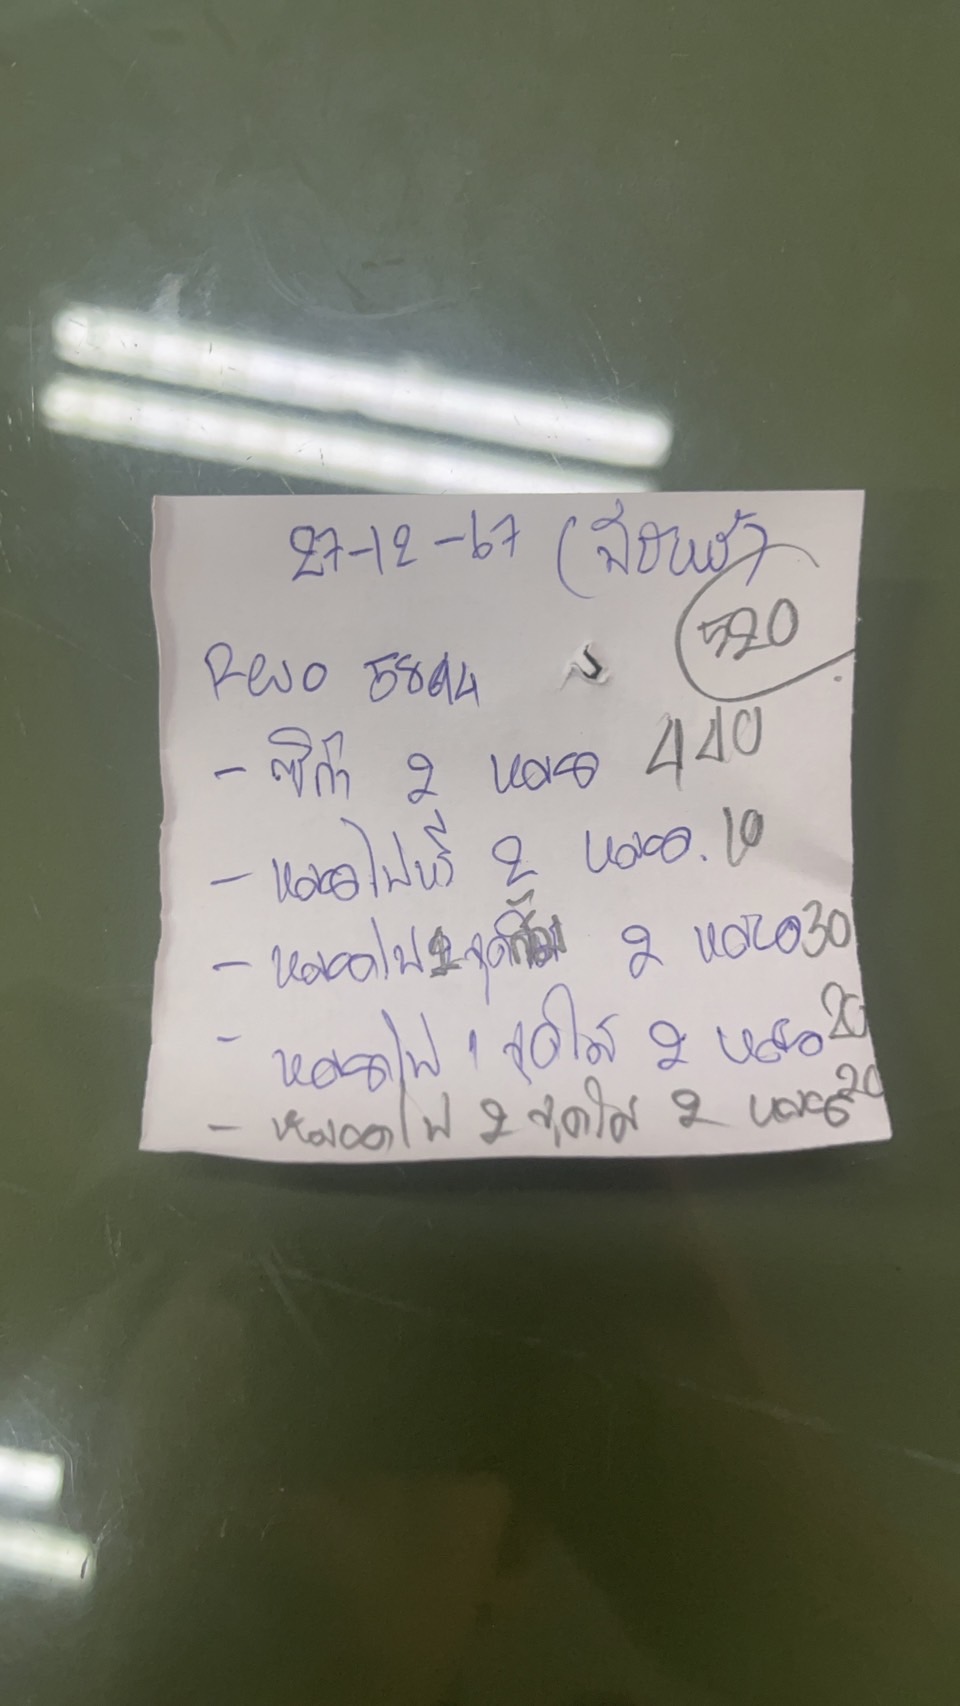 27-12-67
520
Revo 5844
- ซิก้า 2 หลอด 440
- หลอดไฟหรี่ 2 หลอด. 10
- หลอดไฟ 2 จุดส้ม 2 หลอด 30
- หลอดไฟ 1 จุดใส 2 หลอด 20
- หลอดไฟ 2 จุดใส 2 หลอด 20